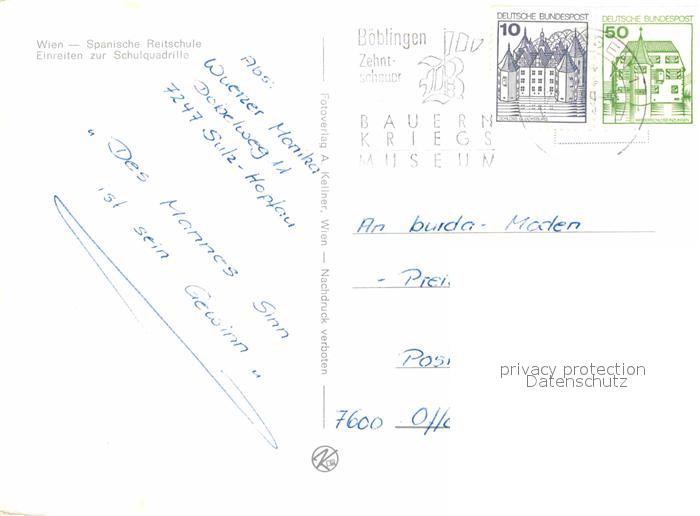 Wien — Spanische Reitschule
Einreiten zur Schulquadrille
Abs:
Wuelzer Monika
7247 Sulz-Hopfau
"Des Mannes Sinn
ist sein Gewinn"
Fotoverlag A. Kellner, Wien — Nachdruck verboten
Böblingen
Zehnt-
scheuer
BAUERN
KRIEGS
MUSEUM
DEUTSCHE BUNDESPOST
10
SCHLOSS GLÜCKSBURG
DEUTSCHE BUNDESPOST
50
An burda-Moden
- Prei
Pos
7600 Off
privacy protection
Datenschutz